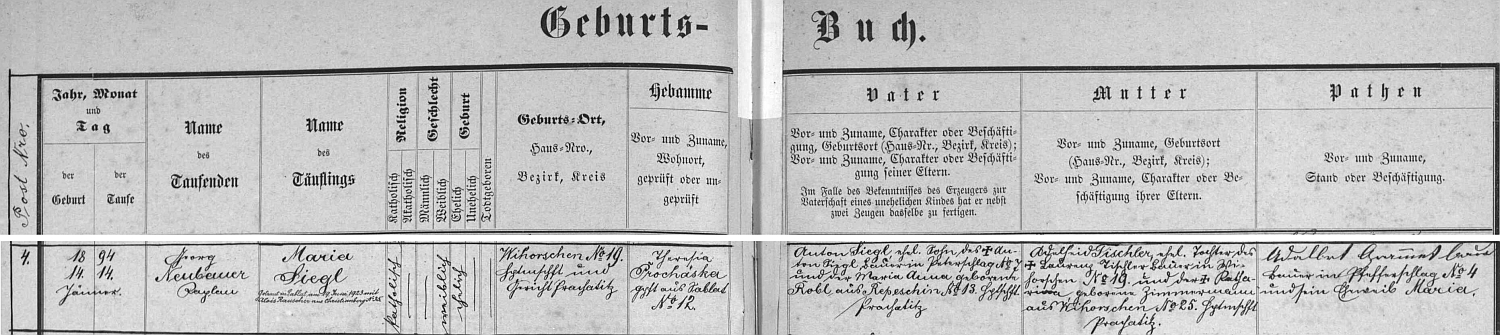 Geburts-Buch.
Post Nro.
Jahr, Monat
und
Tag
der
Geburt
der
Taufe
Name
des
Taufenden
Name
des
Täuflings
Religion
Katholisch
Akatholisch
Geschlecht
Männlich
Weiblich
Geburt
Ehelich
Unehelich
Todtgeboren
Geburts-Ort,
Haus-Nro.,
Bezirk, Kreis
Hebamme
Vor- und Zuname,
Wohnort,
geprüft oder un-
geprüft
Vater
Vor- und Zuname, Charakter oder Beschäfti-
gung, Geburtsort (Haus-Nr., Bezirk, Kreis);
Vor- und Zuname, Charakter oder Beschäfti-
gung seiner Eltern.
Im Falle des Bekenntnisses des Erzeugers zur
Vaterschaft eines unehelichen Kindes hat er nebst
zwei Zeugen dasselbe zu fertigen.
Mutter
Vor- und Zuname, Geburtsort
(Haus-Nr., Bezirk, Kreis);
Vor- und Zuname, Charakter oder Be-
schäftigung ihrer Eltern.
Pathen
Vor- und Zuname,
Stand oder Beschäftigung.
4.
18 94
14. 14.
Jänner.
Georg
Neubauer
Kaplan
Maria
Siegl
katholisch
weiblich
ehelich
Wihorschen No 19.
Hptmschft und
Gericht Prachatitz
Theresia
Procháska
gpft aus Sablat
No 12.
Anton Siegl, ehel. Sohn des † An-
ton Siegl Bauer in Peterschlag No 7
und der Maria Anna geborene
Robl aus Repeschin No 13. Hptschft
Prachatitz
Adelheid Tischler, ehel. Tochter des
† Laurenz Tischler Bauer in Wi-
horschen No 19. und der † Katha-
rina geborenen Zimmermann
aus Wihorschen No 25. Hptmschft
Prachatitz.
Adalbert
Bauer in Pfefferschlag No 4
und sein Eheweib Maria.